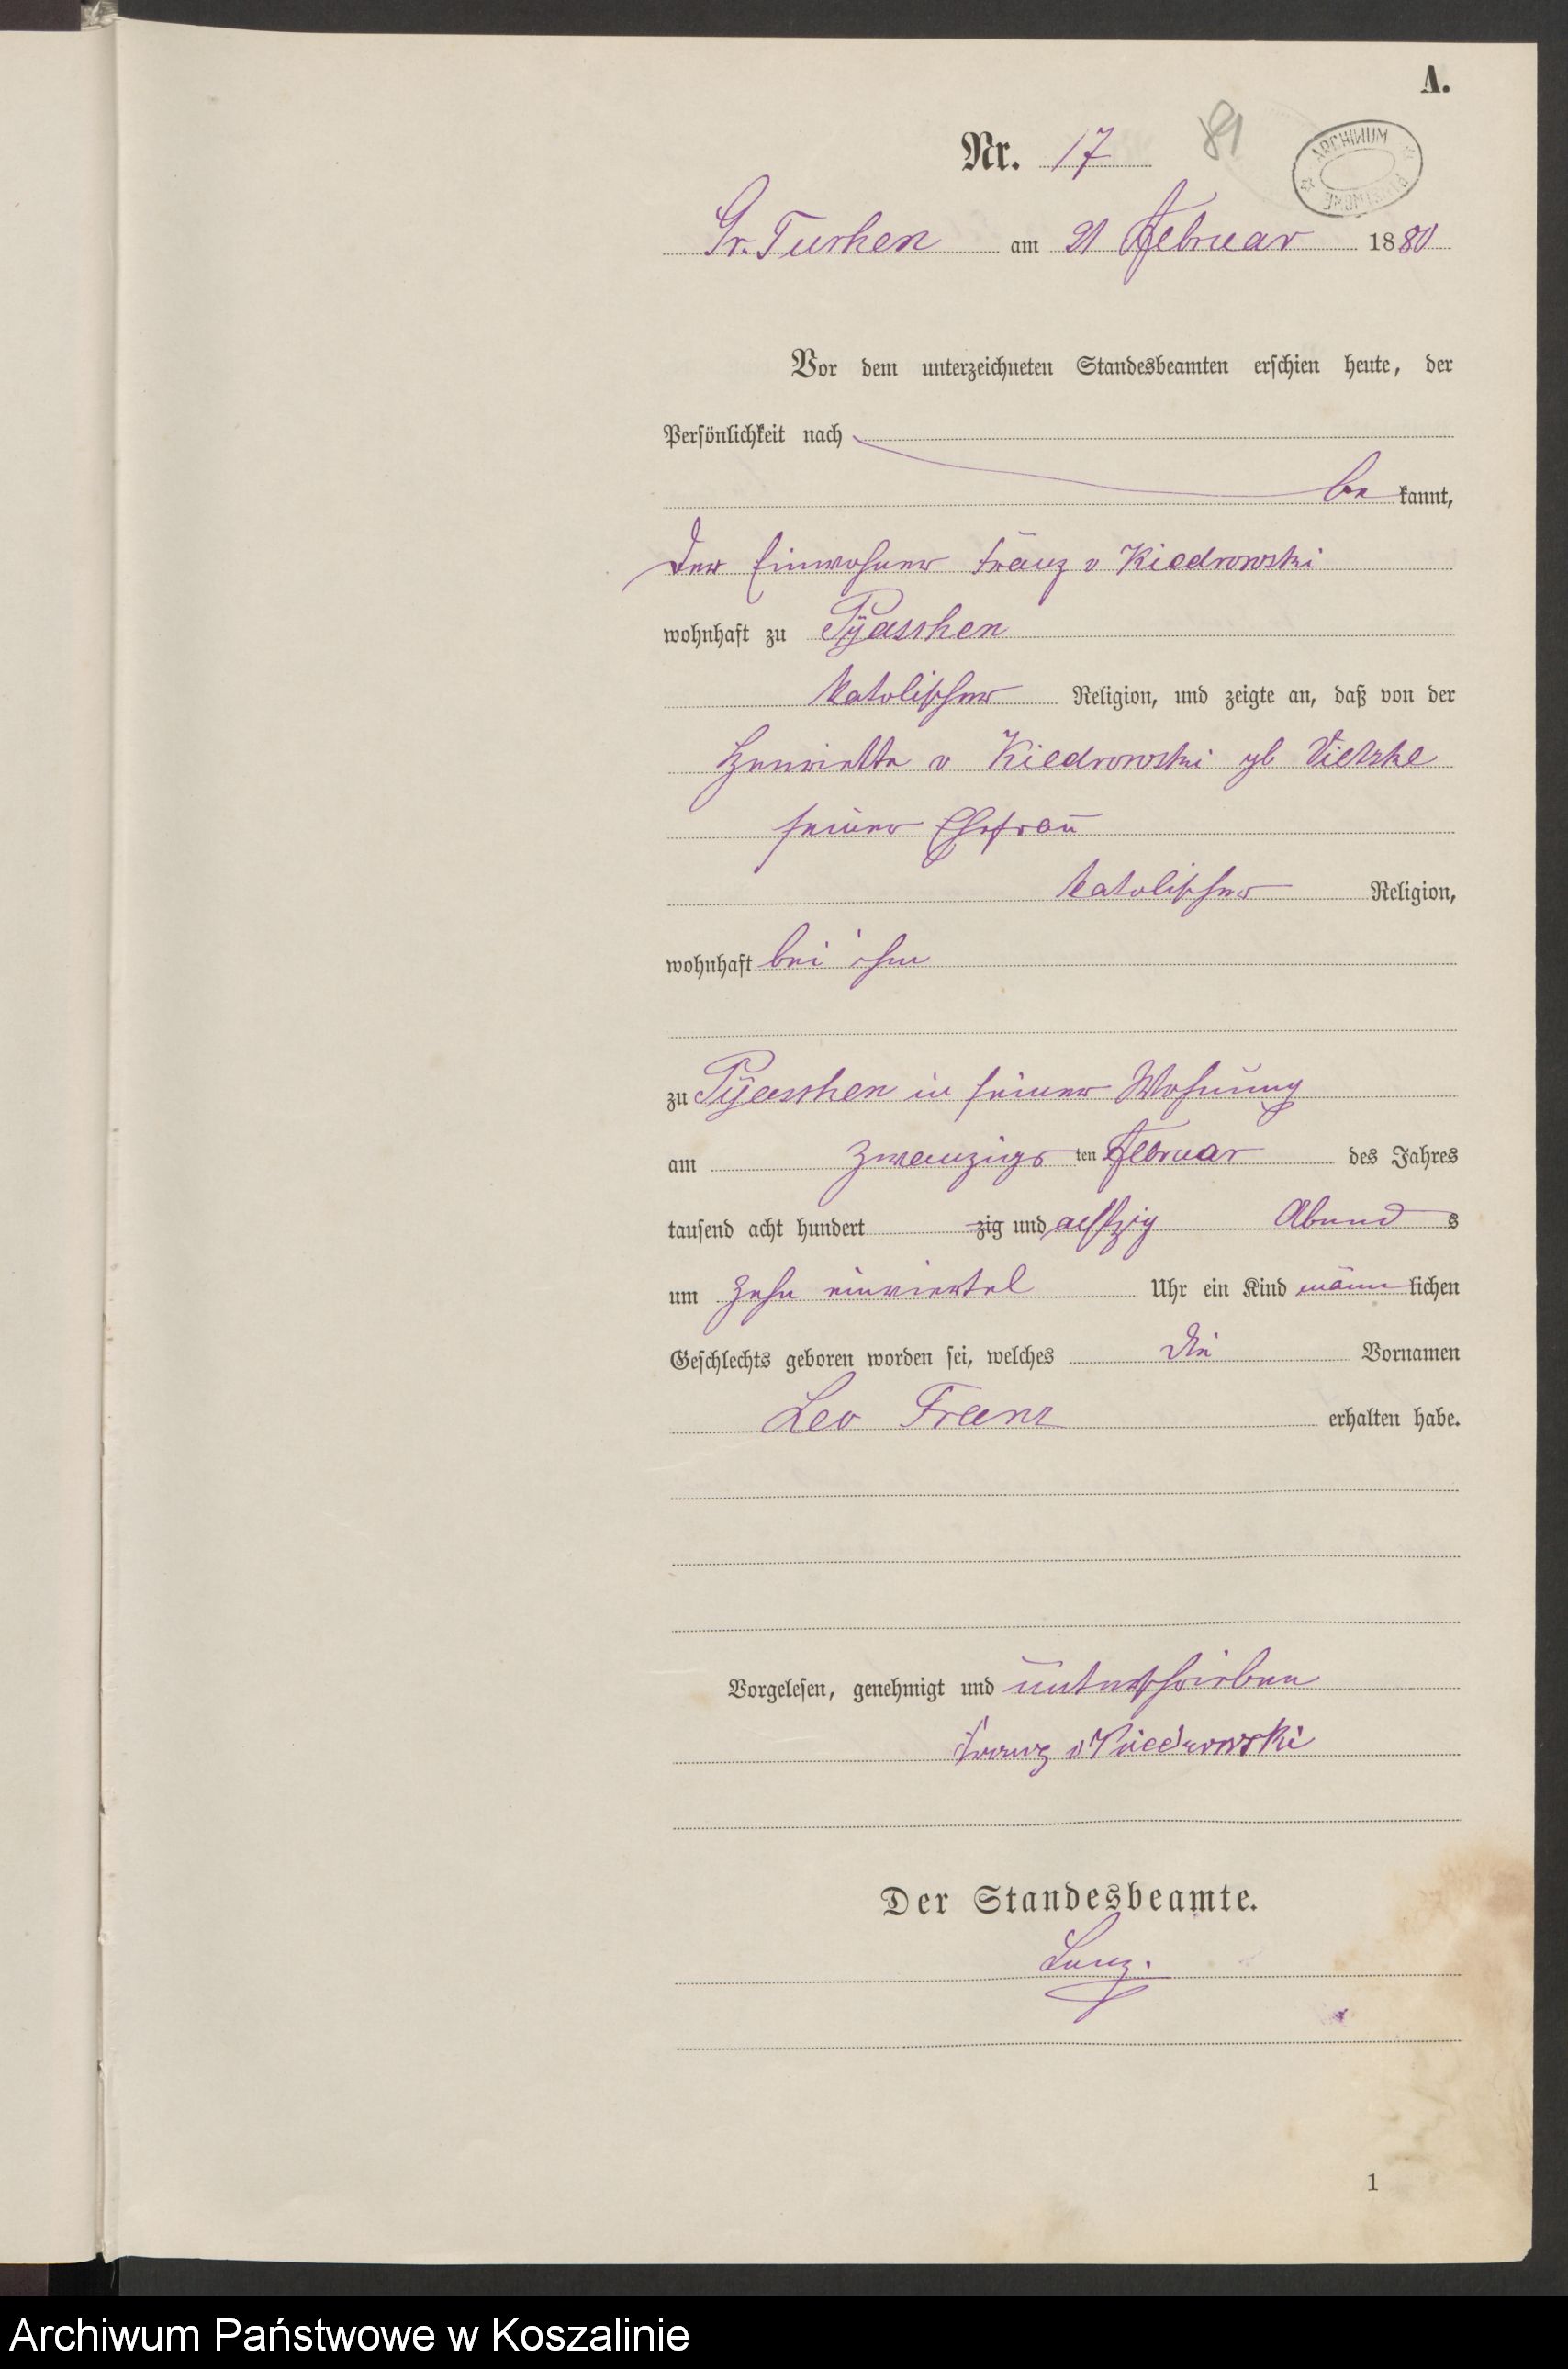 A.
Nr. 17 81
ARCHIWUM PAŃSTWOWE
Gr. Tuchen am 21 Februar 1880
Vor dem unterzeichneten Standesbeamten erschien heute, der
Persönlichkeit nach
be kannt,
der Einwohner Franz v Kiedrowski
wohnhaft zu Pyaschen
katolischer Religion, und zeigte an, daß von der
Henriette v Kiedrowski gb Vietzke
seiner Ehefrau
katolischer Religion,
wohnhaft bei ihm
zu Pyaschen in seiner Wohnung
am zwanzigs ten Februar des Jahres
tausend acht hundert zig und achtzig Abend s
um zehn einviertel Uhr ein Kind männ lichen
Geschlechts geboren worden sei, welches die Vornamen
Leo Franz erhalten habe.
Vorgelesen, genehmigt und unterschrieben
Franz v Kiedrowski
Der Standesbeamte.
1
Archiwum Państwowe w Koszalinie